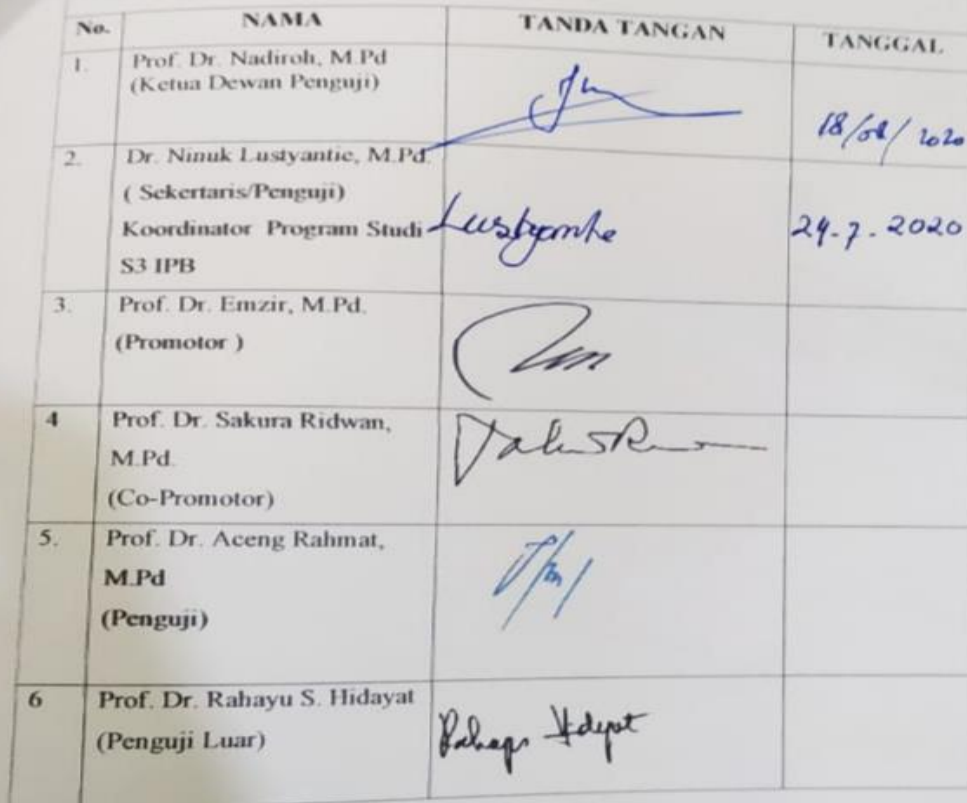 No. NAMA TANDA TANGAN TANGGAL
1. Prof. Dr. Nadiroh, M.Pd
(Ketua Dewan Penguji)
18/08/2020
2. Dr. Ninuk Lustyantie, M.Pd.
( Sekertaris/Penguji)
Koordinator Program Studi Lustyantie 29.7.2020
S3 IPB
3. Prof. Dr. Emzir, M.Pd.
(Promotor )
4 Prof. Dr. Sakura Ridwan,
M.Pd.
(Co-Promotor)
5. Prof. Dr. Aceng Rahmat,
M.Pd
(Penguji)
6 Prof. Dr. Rahayu S. Hidayat
(Penguji Luar) Rahayu Hidayat